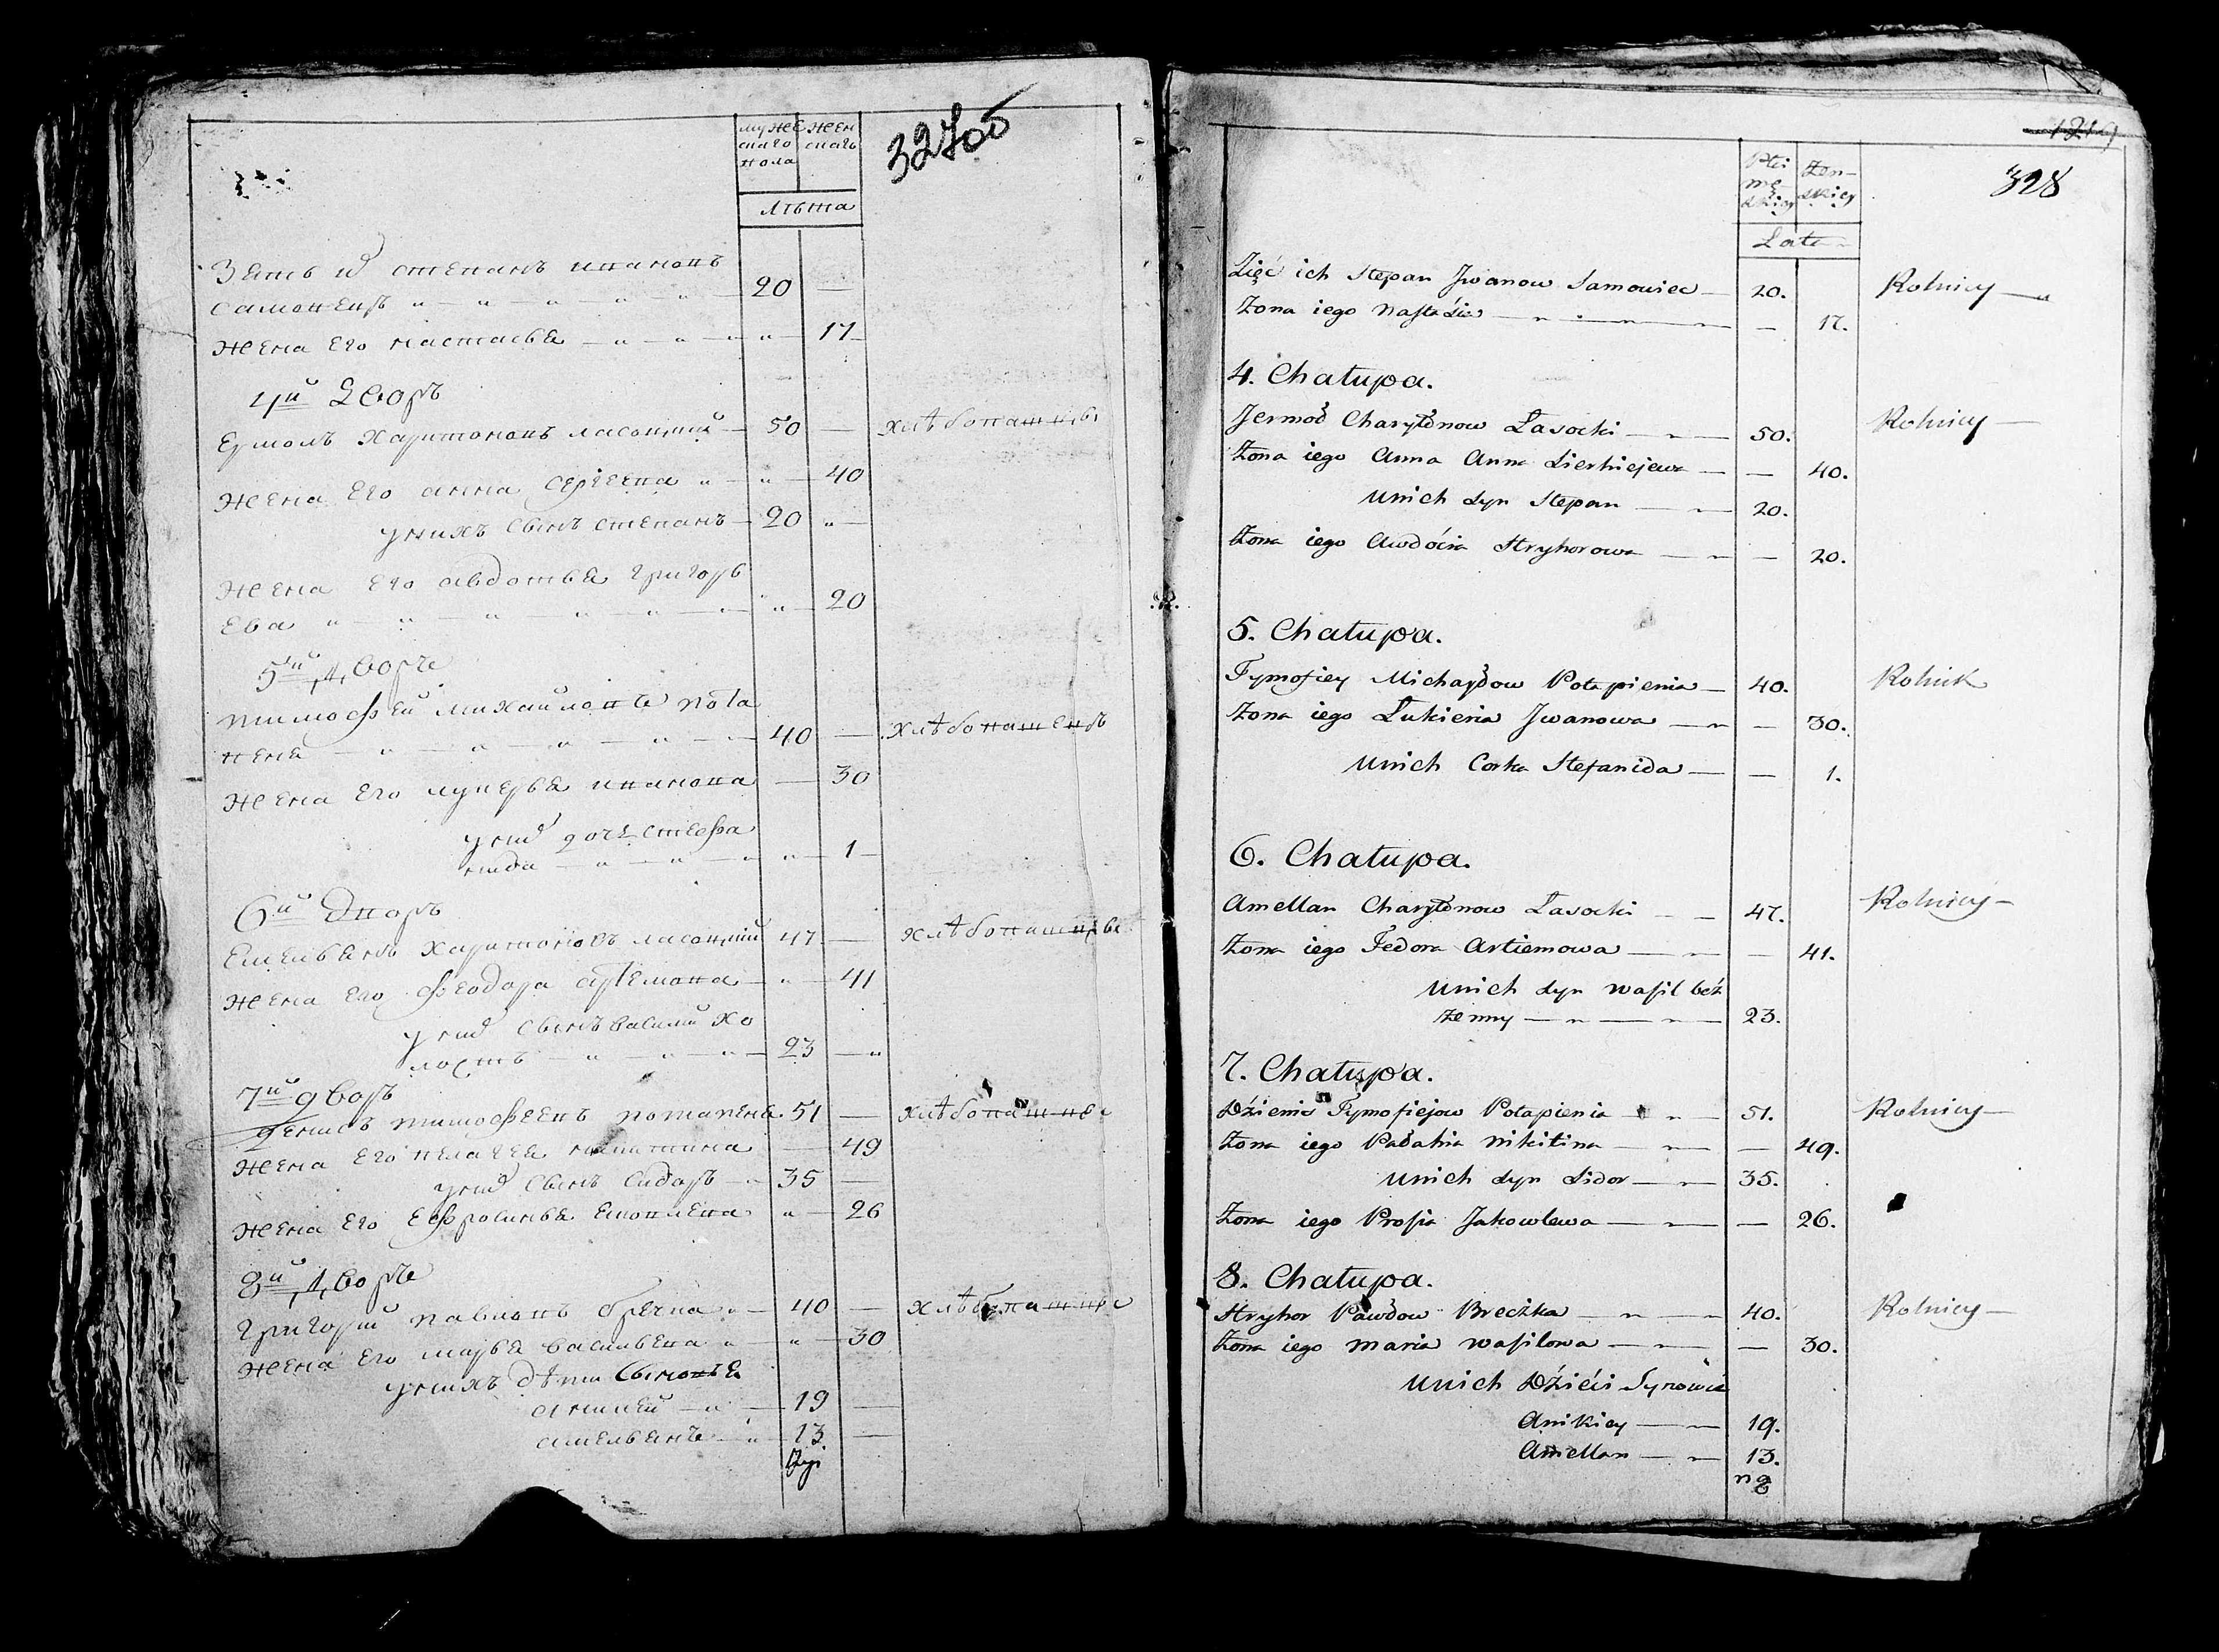 мужескаго пола женскаго
лѣта
327об
Зять ихъ степанъ ивановъ
самовецъ 20
жена его настасья 17
4й Дворъ
Ермолъ Харитоновъ ласоцкий 50 хлѣбопашцы
жена Его анна сергеева 40
у нихъ сынъ степанъ 20
жена его авдотья григорь
ева 20
5й дворъ
тимофей михайловъ пота
пеня 40 хлѣбопашецъ
жена Его лукерья иванова 30
у них дочь стефа
нида 1
6й дворъ
Емельянъ Харитоновъ ласоцкий 47 хлѣбопашцы
жена Его феодора артемова 41
у них сынъ василий хо
лостъ 23
7й дворъ
денисъ тимофеевъ потапеня 51 хлѣбопашцы
жена Его пелагея никитина 49
у них сынъ сидоръ 35
жена Его Ефросинья 26
8й дворъ
григорий павловъ бречка 40 хлѣбопашцы
жена Его марья васильева 30
у нихъ дѣти сыновья
аникей 19
амельянъ 13
1219
328
Płci męzkiey Żenskiey
Lata
Zięć ich Stepan Jwanow Samowiec 20. Rolnicy
Żona iego Nastasia 17.
4. Chałupa.
Jermoł Charytonow Łasocki 50. Rolnicy
Żona iego Anna Anna Sierhiejewa 40.
Unich Syn Stepan 20.
Żona iego Awdocia Hryhorowa 20.
5. Chałupa.
Tymofiey Michayłow Potapienia 40. Rolnik
Żona iego Łukieria Jwanowa 30.
Unich Corka Stefanida 1.
6. Chałupa.
Amellan Charytonow Łasocki 47. Rolnicy
Żona iego Fedora Artiemowa 41.
Unich Syn Wasil beż
żenny 23.
7. Chałupa.
Dźienis Tymofiejow Potapienia 51. Rolnicy
Żona iego Pałahia Nikitina 49.
Unich Syn Sidor 35.
Żona iego Prosia Jakowlewa 26.
8. Chałupa.
Hryhor Pawłow Breczka 40. Rolnicy
Żona iego Maria Wasilowa 30.
Unich Dźieci Synowie
Anikiey 19.
Amellan 13.